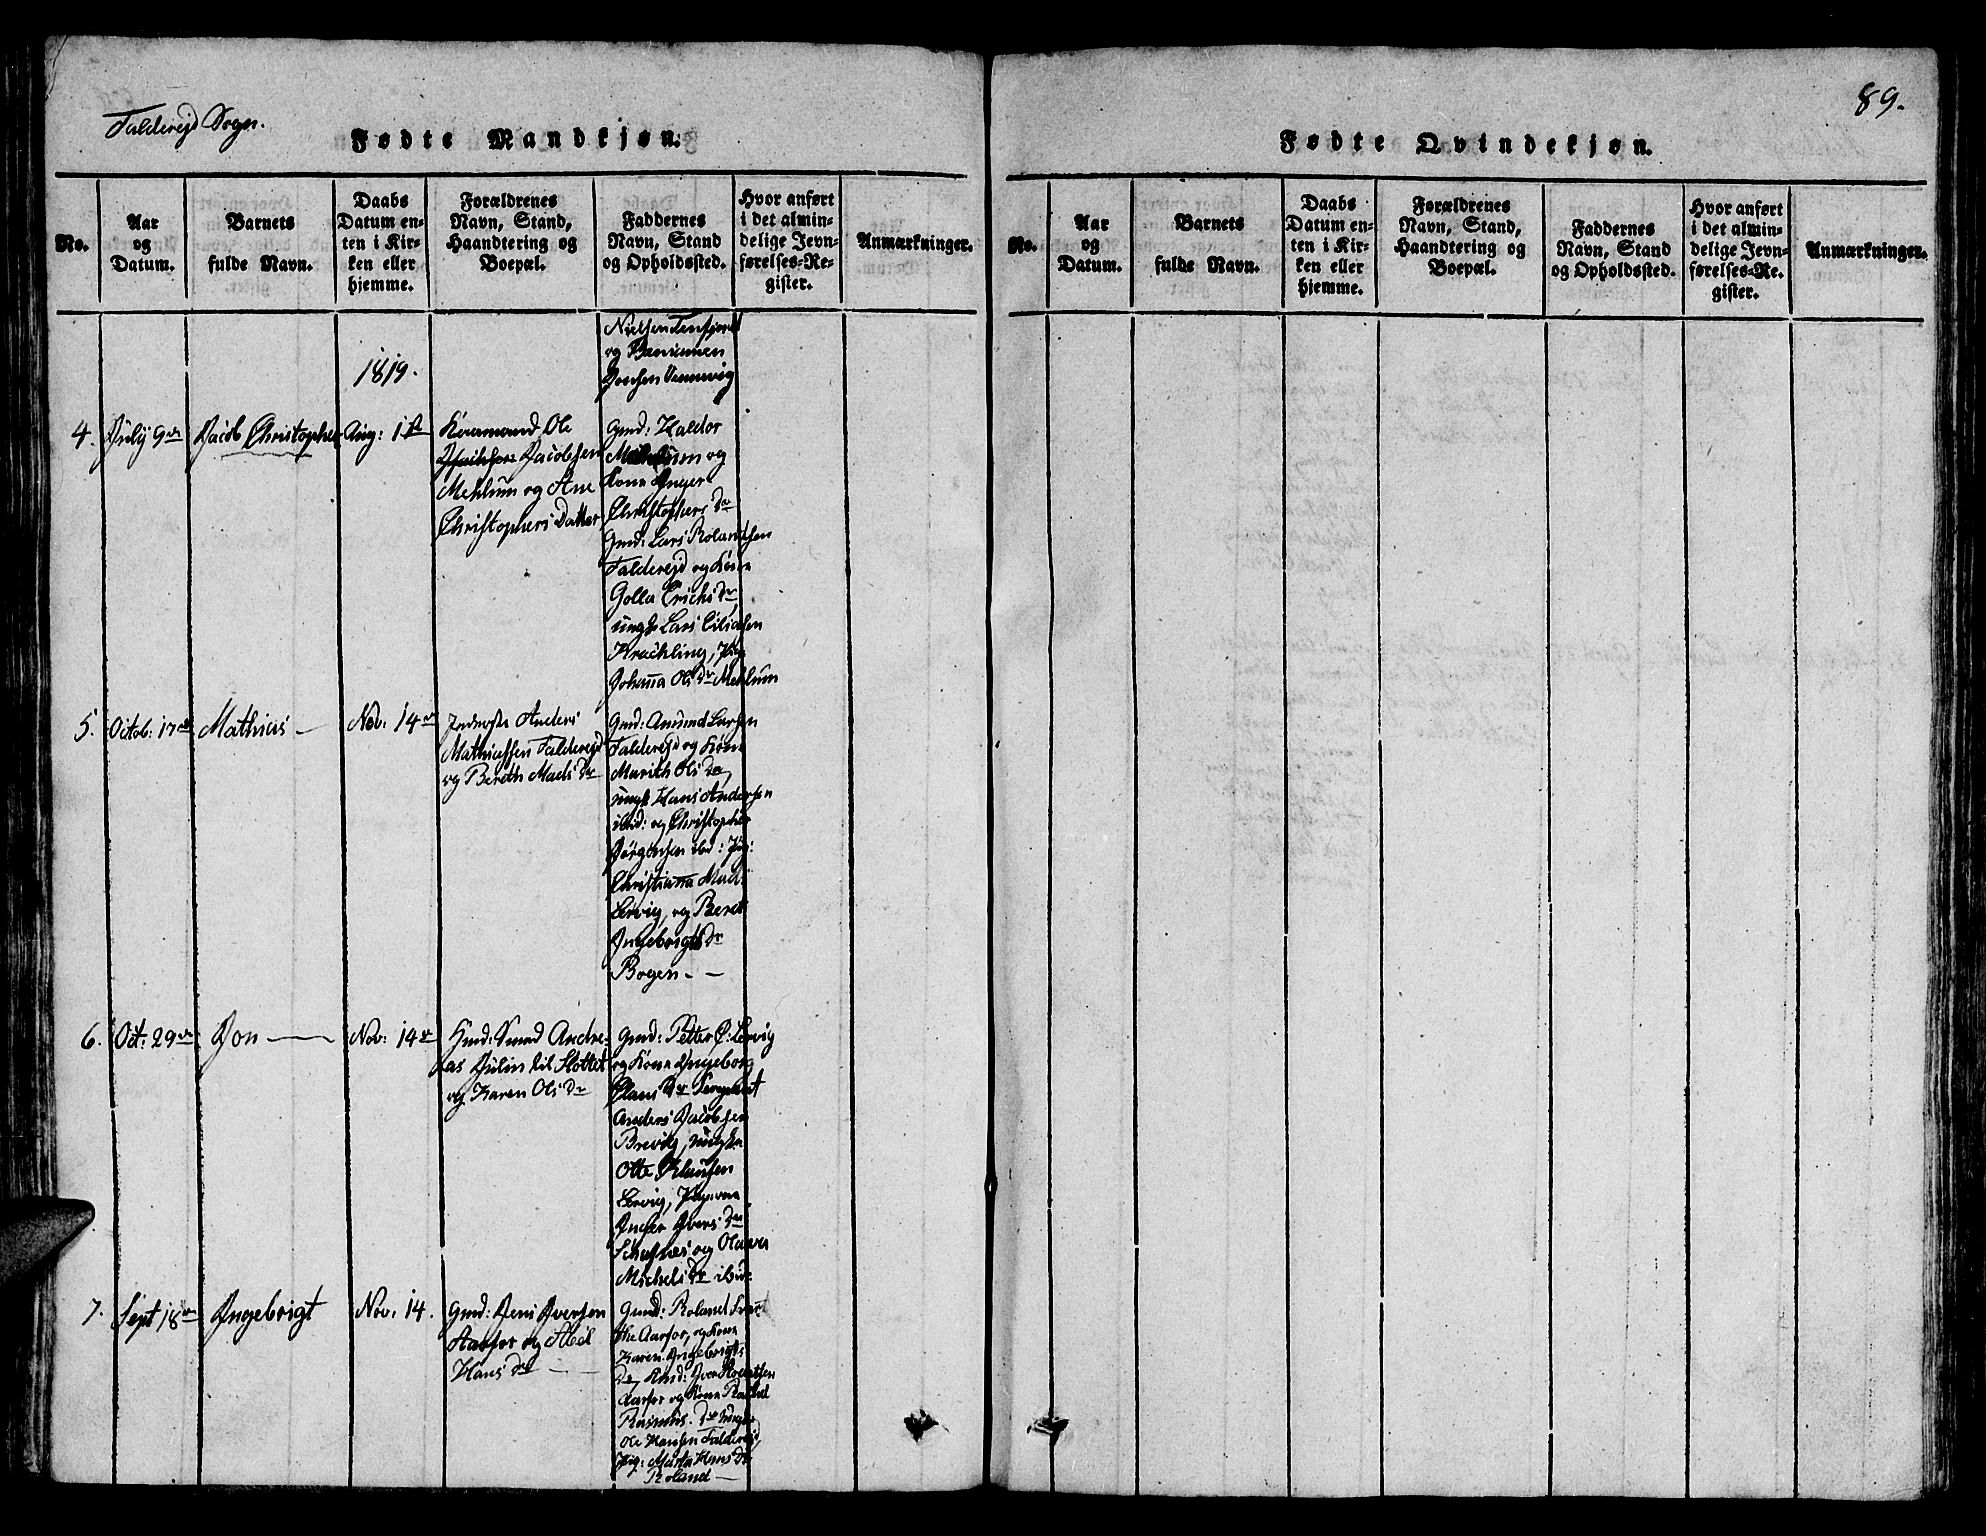 89.
Falderejd Sogn.
Fødte Mandkjøn.
No.
Aar
og
Datum.
Barnets
fulde Navn.
Daabs
Datum en-
ten i Kir-
ken eller
hjemme.
Forældrenes
Navn, Stand,
Haandtering og
Boepæl.
Faddernes
Navn, Stand
og Opholdssted.
Hvor anført
i det almin-
delige Jevn-
førelses-Re-
gister.
Anmærkninger.
1819.
Nielsen Tenfjord
og
Joensen
4.
July 9de
Jacob Christopher
Aug: 1ste
Ole
Jacobsen
Mehlum og Ane
Christophers Datter
Gmd: Haldor
Mehlum og
Kone Inger
Christophers Dr
Gmd: Lars Rolandsen
Falderejd og Kone
Golla Erichs Dr,
ungk: Lars Eliasen
Krackling, Pig
Johanna Ols Dr Mehlum
5.
Octob: 17de
Mathias —
Nov: 14de
Anders
Mathiassen Falderejd
og Bereth Mads Dr
Gmd: Amund Larsen
Falderejd og Kone
Marith Ols Dr,
ungk: Hans Andersen
ibid: og Christopher
Jørgensen ibd: Pig:
Christianna Mads
Lervig, og Beret
Ingebrigts Dr
Bogen — —
6.
Oct: 29de
Jon —
Nov: 14de
Hmd: Smed Andre-
as Julin til Slottet
og Karen Ols Dr
Gmd: Petter C: Lervig
og Kone Ingeborg
Clans Dr Sergeant
Anders Jacobsen
Brevik, ungka
Otte Klausen
Lervig, Pigerne
Inger Ivers Dr
og
Michels Dr ibid:
7.
Sept 18de
Ingebrigt
Nov: 14.
Gmd: Jens Iversen
Aarfor og Abel
Hans Dr —
Gmd: Roland
Aarfor, og Kone
Karen Ingebrigts
Dr, Gmd: Iver
Aarfor og Kone Rachel
Rasmus Dr ungk:
Ole Hansen Falderejd,
Pig: Marta Hans Dr
Roland —
Fødte Qvindekjøn.
No.
Aar
og
Datum.
Barnets
fulde Navn.
Daabs
Datum en-
ten i Kir-
ken eller
hjemme.
Forældrenes
Navn, Stand,
Haandtering og
Boepæl.
Faddernes
Navn, Stand
og Opholdssted.
Hvor anført
i det almin-
delige Jevn-
førelses-Re-
gister.
Anmærkninger.